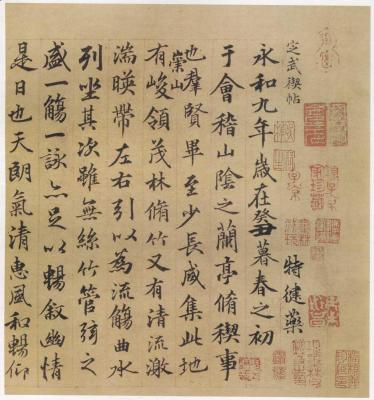 定武禊帖
特健藥
永和九年歲在癸丑暮春之初
于會稽山陰之蘭亭脩稧事
也羣賢畢至少長咸集此地
有崇山峻領茂林脩竹又有清流激
湍暎帶左右引以為流觴曲水
列坐其次雖無絲竹管弦之
盛一觴一詠亦足以暢敘幽情
是日也天朗氣清惠風和暢仰